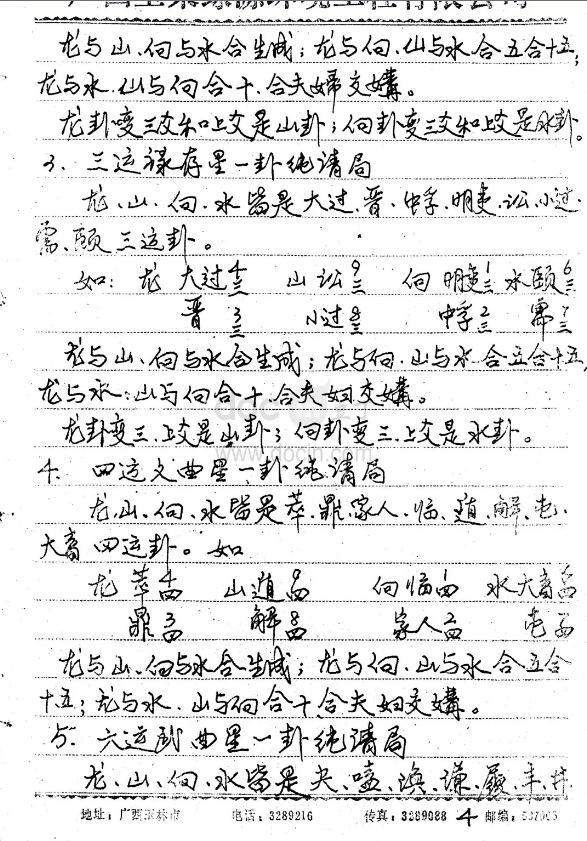 龙与山、向与水合生成；龙与向、山与水合五合十五；
龙与水、山与向合十、合夫婦交媾。
龙卦变三爻和上爻是山卦；向卦变三爻和上爻是水卦。
3、三运禄存星一卦纯清局
龙、山、向、水皆是大过、晋、中孚、明夷、讼、小过、
需、颐三运卦。
如：龙 大过 4/三 山 讼 9/三 向 明夷 1/三 水 颐 6/三
晋 3/三 小过 8/三 中孚 2/三 需 7/三
龙与山、向与水合生成；龙与向、山与水合五合十五，
龙与水；山与向合十、合夫妇交媾。
龙卦变三、上爻是山卦；向卦变三、上爻是水卦。
4、四运文曲星一卦纯清局
龙、山、向、水皆是萃、鼎、家人、临、遁、解、屯、
大畜四运卦。如
龙 萃 4/四 山 遁 9/四 向 临 1/四 水 大畜 6/四
鼎 3/四 解 8/四 家人 2/四 屯 7/四
龙与山、向与水合生成；龙与向、山与水合五合
十五；龙与水、山与向合十合夫妇交媾。
5、六运武曲星一卦纯清局
龙、山、向、水皆是夬、嗑、涣、谦、履、丰、井
地址：广西玉林市 电话：3289216 传真：3289088 4 邮编：537005
www.docin.com